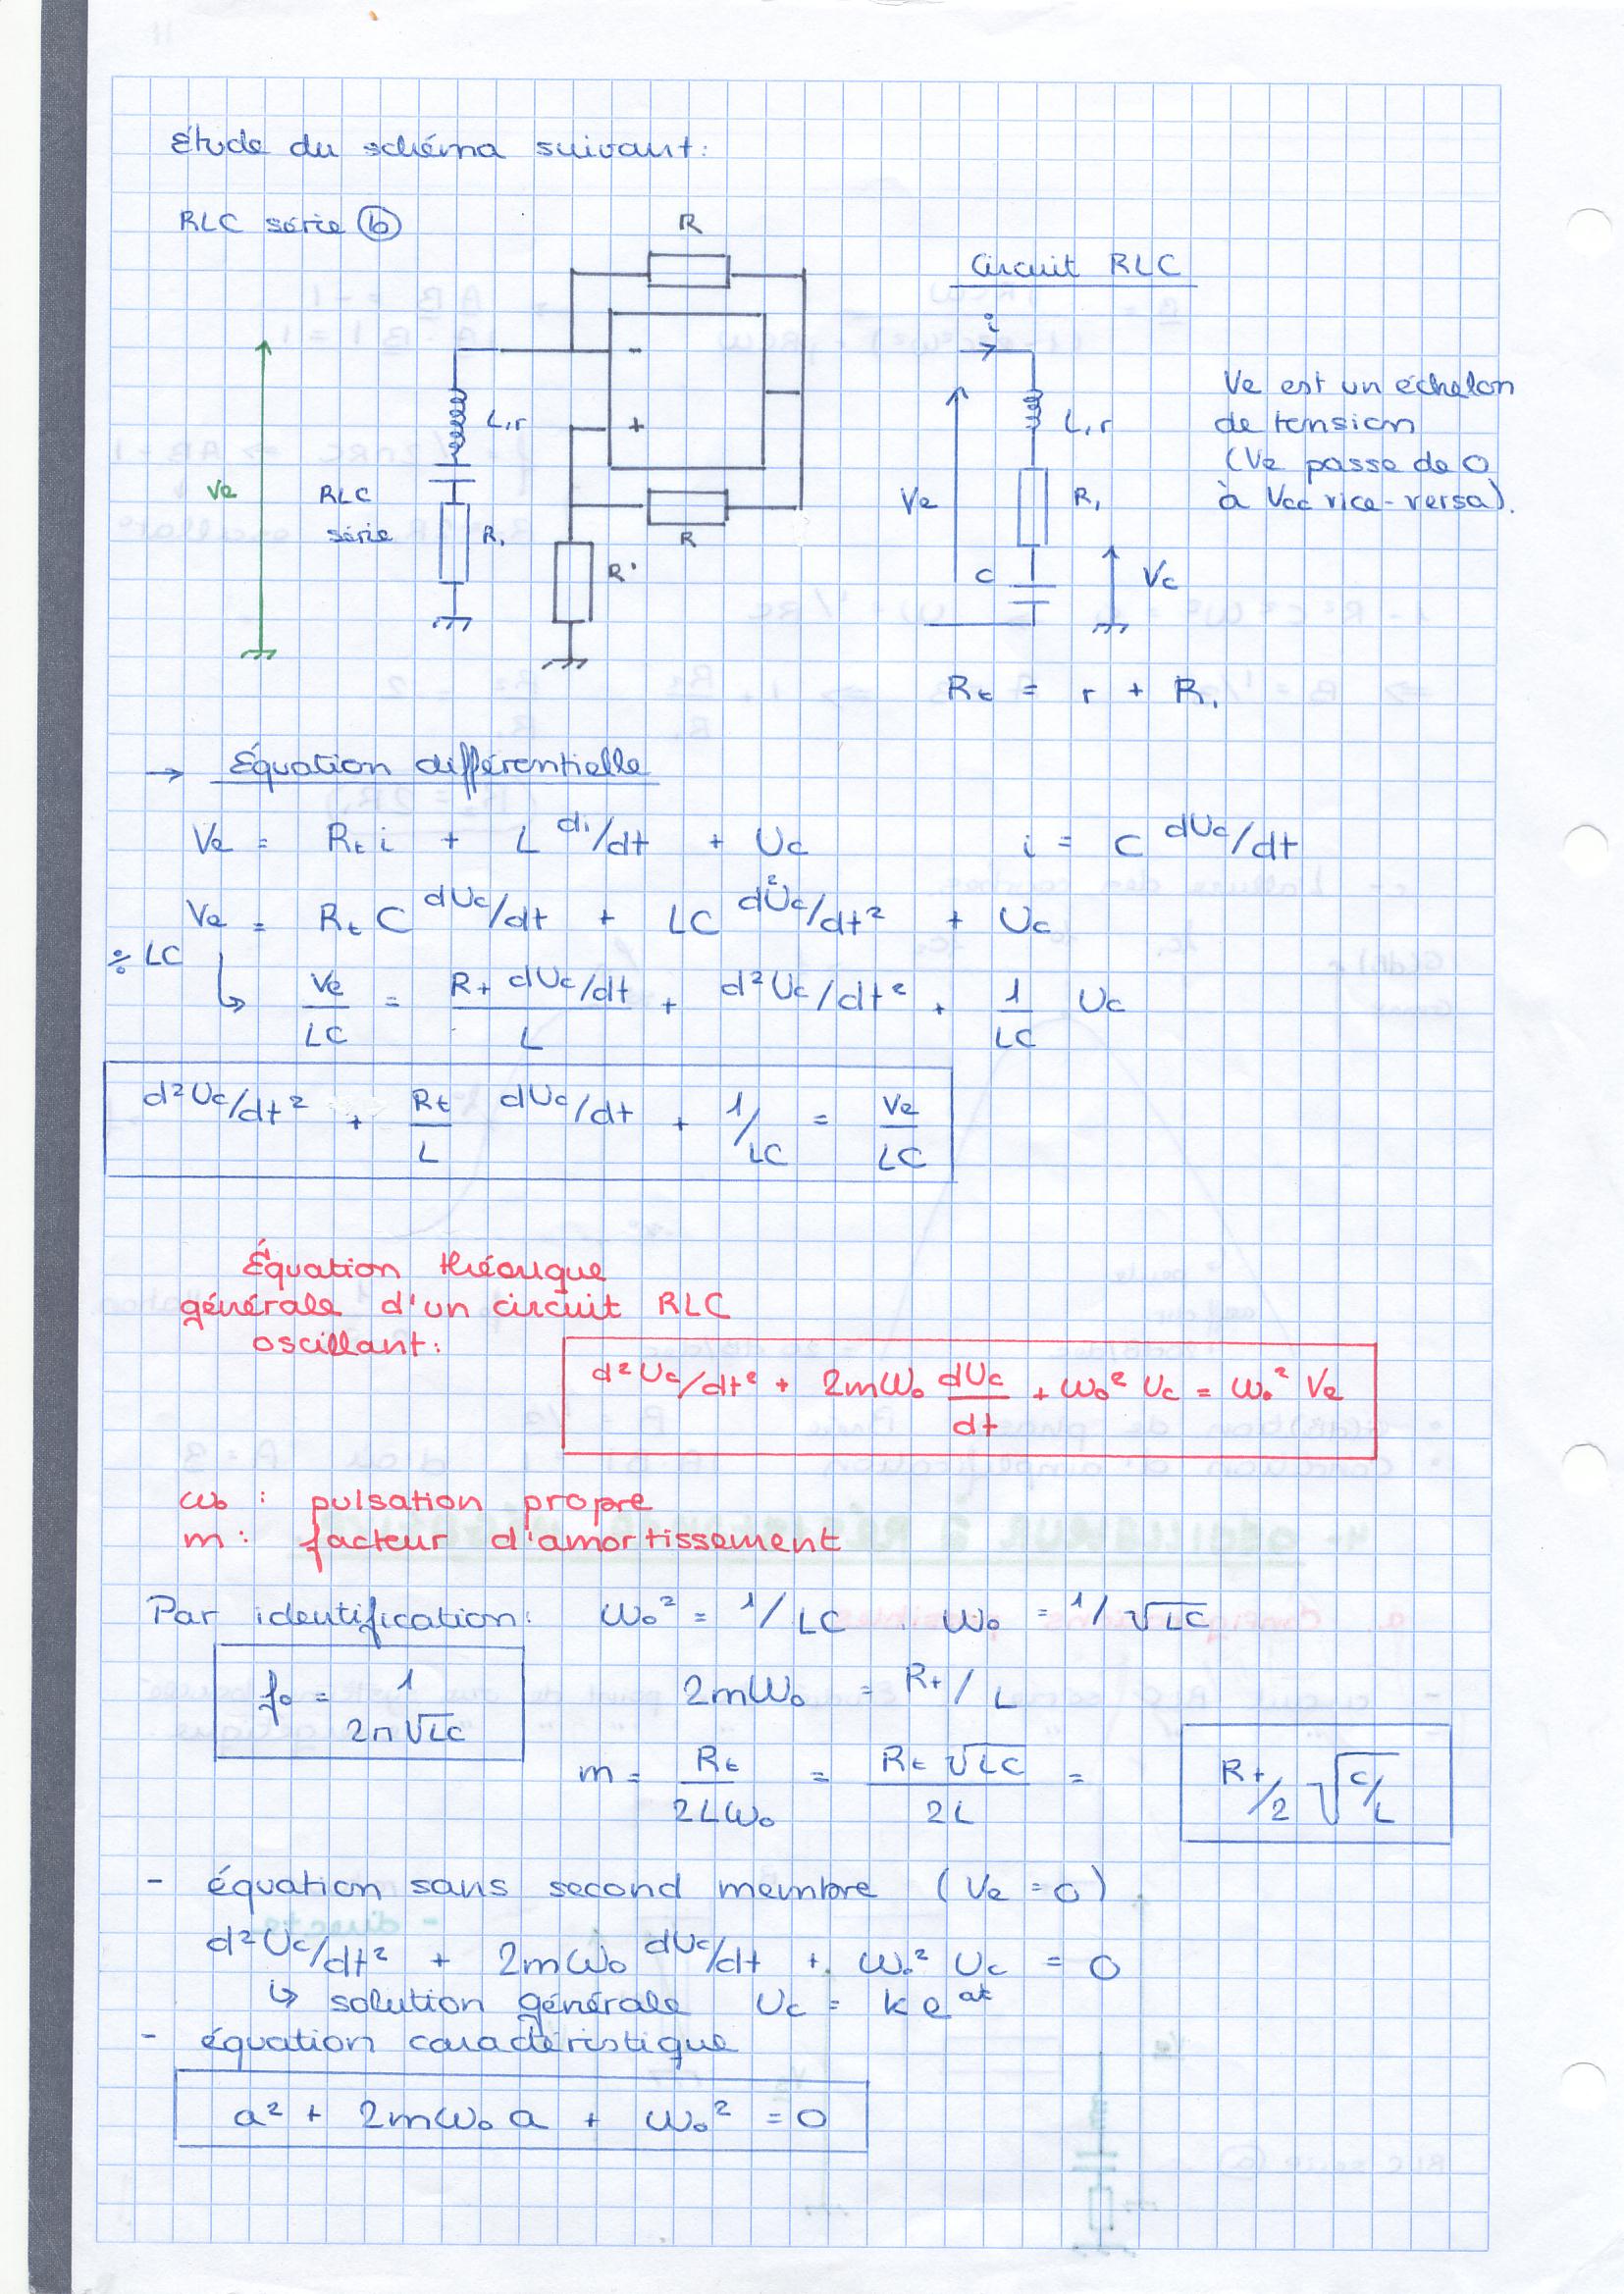 Étude du schéma suivant:
RLC série (b)
R
Circuit RLC
i
-
+
L,r
Ve
RLC
série
R₁
R
R'
L,r
Ve
R₁
C
Vc
Ve est un échelon
de tension
(Ve passe de 0
à Vcc vice-versa).
Rt = r + R₁
→ Équation différentielle
Ve = Rt i + L di/dt + Uc i = C dUc/dt
Ve = Rt C dUc/dt + LC d²Uc/dt² + Uc
÷ LC
↳ Ve/LC = Rt dUc/dt / L + d²Uc/dt² + 1/LC Uc
d²Uc/dt² + Rt/L dUc/dt + 1/LC = Ve/LC
Équation théorique
générale d'un circuit RLC
oscillant:
d²Uc/dt² + 2mω₀ dUc/dt + ω₀² Uc = ω₀² Ve
ω₀ : pulsation propre
m : facteur d'amortissement
Par identification: ω₀² = 1/LC . ω₀ = 1/√LC
f₀ = 1/2π√LC
2mω₀ = Rt/L
m = Rt/2Lω₀ = Rt √LC/2L = Rt/2 √C/L
- équation sans second membre (Ve = 0)
d²Uc/dt² + 2mω₀ dUc/dt + ω₀² Uc = 0
↳ solution générale Uc = k e^at
- équation caractéristique
a² + 2mω₀ a + ω₀² = 0